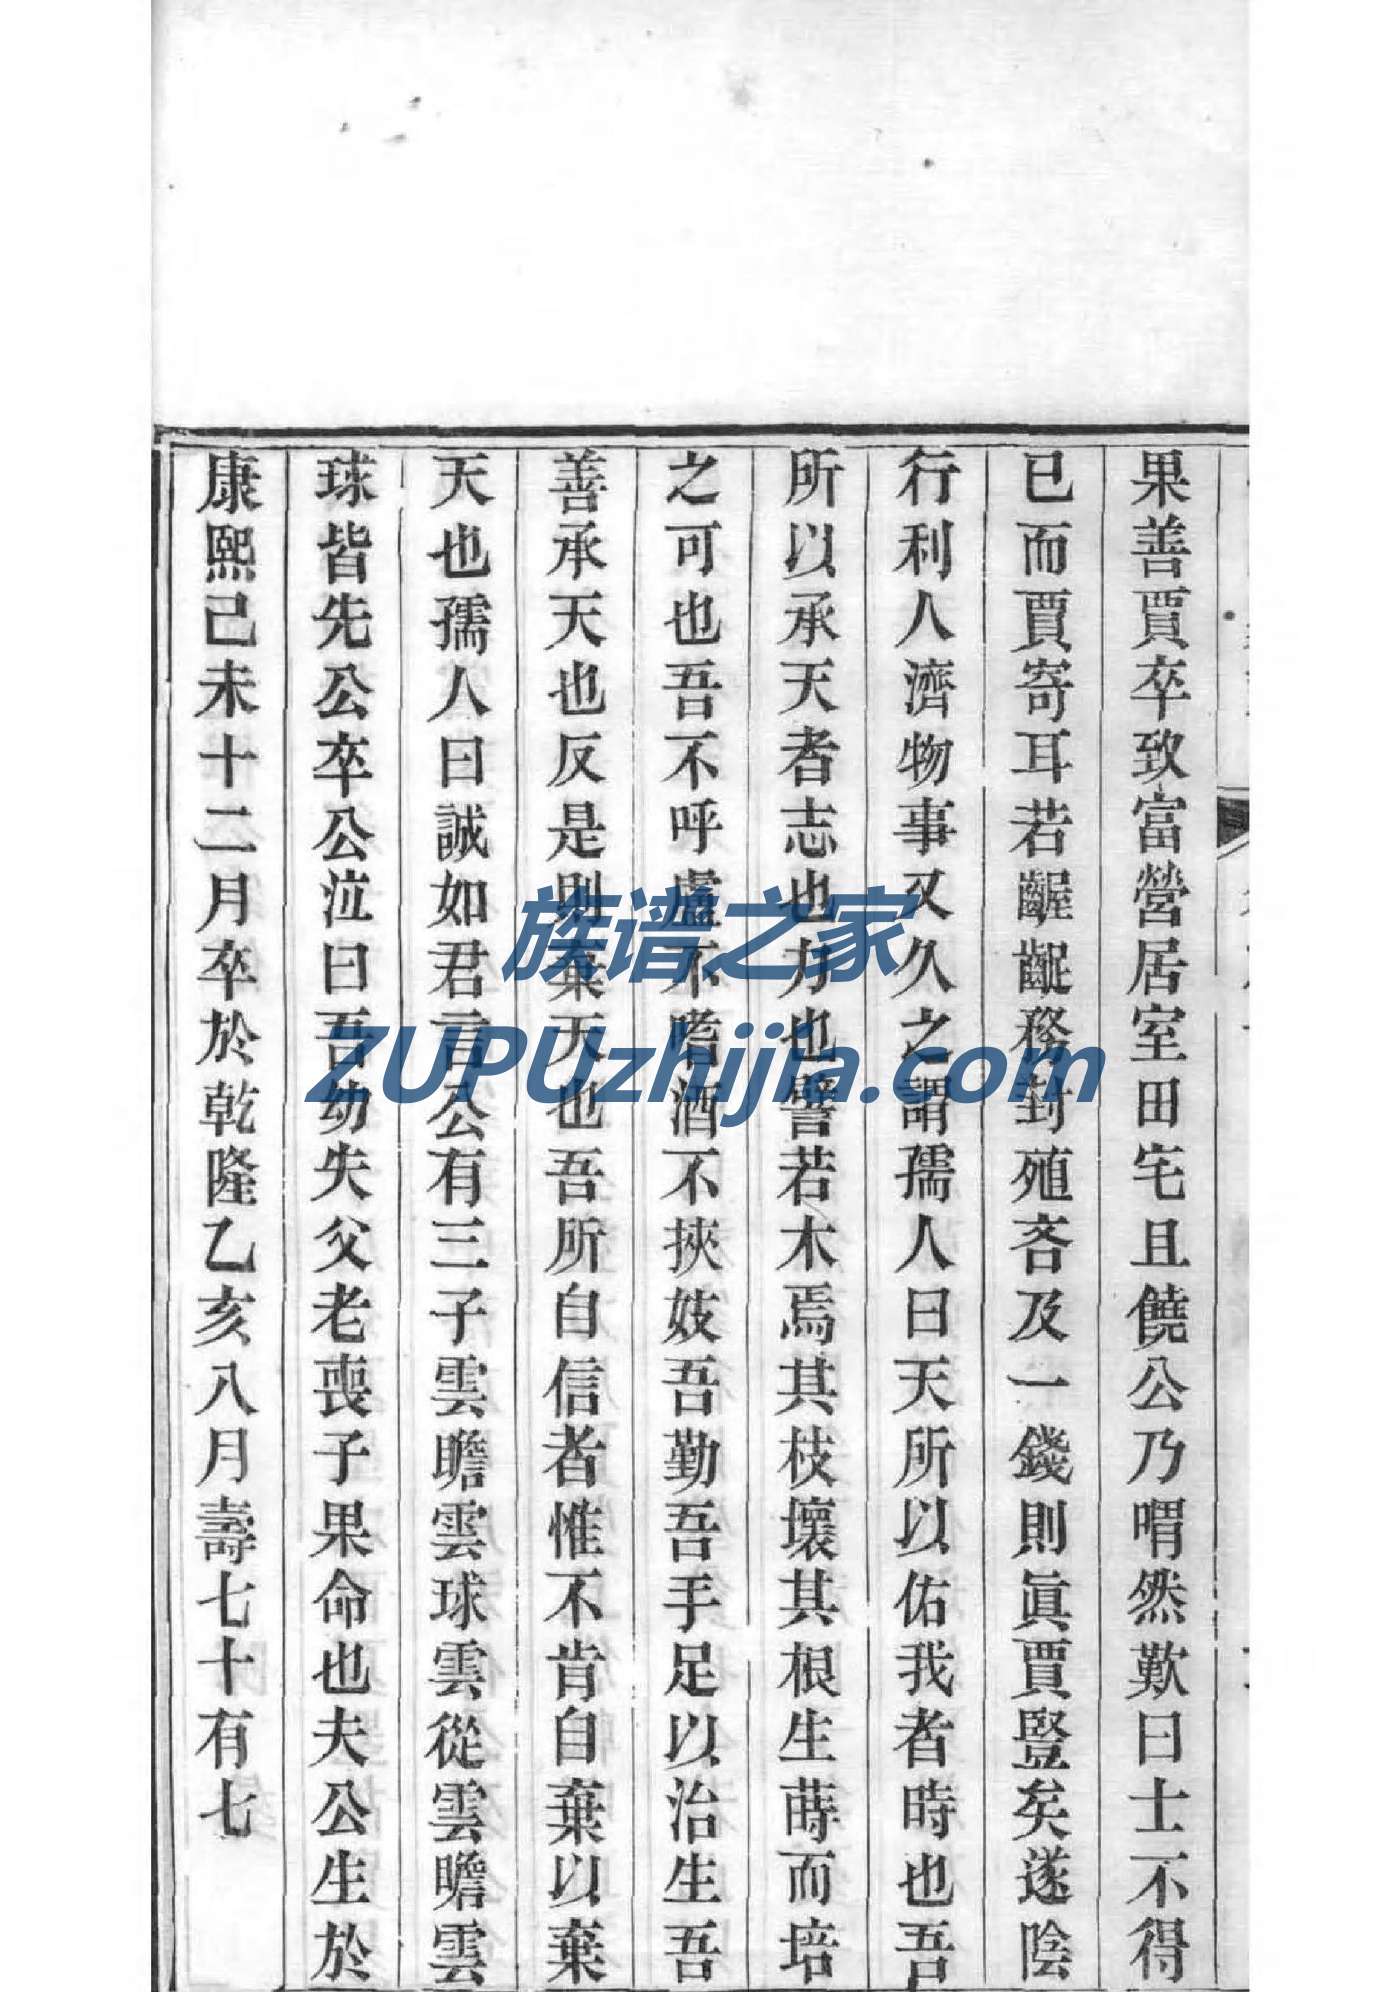 果善賈卒致富營居室田宅且饒公乃喟然歎曰士不得
已而賈寄耳若齷齪務封殖吝及一錢則眞賈豎矣遂陰
行利人濟物事又久之謂孺人曰天所以佑我者時也吾
所以承天者志也力也譬若木焉其枝壞其根生蒔而培
之可也吾不呼盧不嗜酒不挾妓吾勤吾手足以治生吾
善承天也反是則棄天也吾所自信者惟不肯自棄以棄
天也孺人曰誠如君言公有三子雲瞻雲球雲從雲瞻雲
球皆先公卒公泣曰吾幼失父老喪子果命也夫公生於
康熙己未十二月卒於乾隆乙亥八月壽七十有七
族谱之家
ZUPUzhijia.com